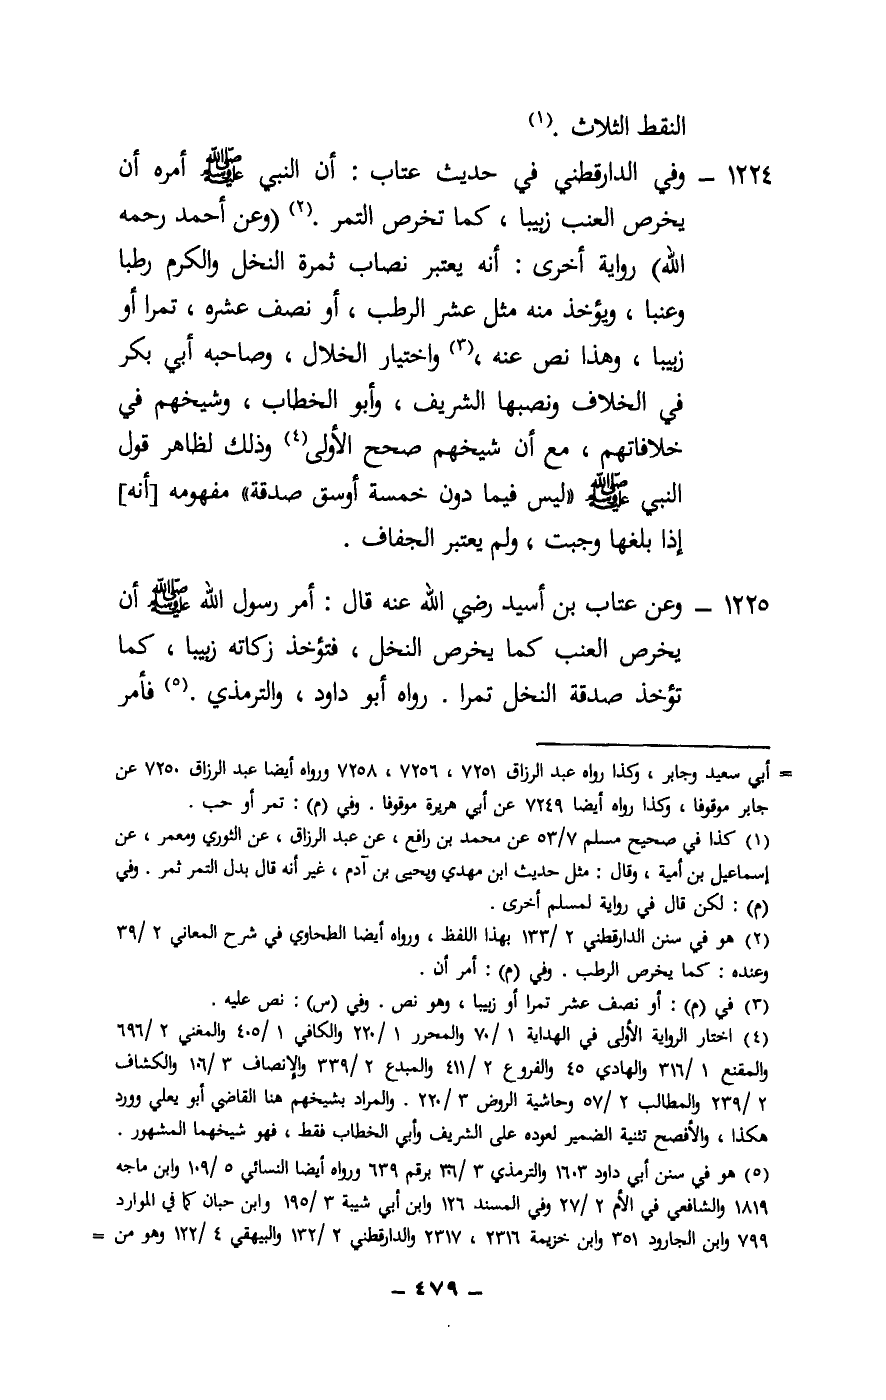 النقط الثلاث .(١)
١٢٢٤ – وفي الدارقطني في حديث عتاب : أن النبي ﷺ أمره أن
يخرص العنب زبيبا ، كما تخرص التمر .(٢) (وعن أحمد رحمه
الله) رواية أخرى : أنه يعتبر نصاب ثمرة النخل والكرم رطبا
وعنبا ، ويؤخذ منه مثل عشر الرطب ، أو نصف عشره ، تمرا أو
زبيبا ، وهذا نص عنه ،(٣) واختيار الخلال ، وصاحبه أبي بكر
في الخلاف ونصبها الشريف ، وأبو الخطاب ، وشيخهم في
خلافاتهم ، مع أن شيخهم صحح الأولى(٤) وذلك لظاهر قول
النبي ﷺ «ليس فيما دون خمسة أوسق صدقة» مفهومه [أنه]
إذا بلغها وجبت ، ولم يعتبر الجفاف .
١٢٢٥ – وعن عتاب بن أسيد رضي الله عنه قال : أمر رسول الله ﷺ أن
يخرص العنب كما يخرص النخل ، فتؤخذ زكاته زبيبا ، كما
تؤخذ صدقة النخل تمرا . رواه أبو داود ، والترمذي .(٥) فأمر
= أبي سعيد وجابر ، وكذا رواه عبد الرزاق ٧٢٥١ ، ٧٢٥٦ ، ٧٢٥٨ ورواه أيضا عبد الرزاق ٧٢٥٠ عن
جابر موقوفا ، وكذا رواه أيضا ٧٢٤٩ عن أبي هريرة موقوفا . وفي (م) : تمر أو حب .
(١) كذا في صحيح مسلم ٥٣/٧ عن محمد بن رافع ، عن عبد الرزاق ، عن الثوري ومعمر ، عن
إسماعيل بن أمية ، وقال : مثل حديث ابن مهدي ويحيى بن آدم ، غير أنه قال بدل التمر ثمر . وفي
(م) : لكن قال في رواية لمسلم أخرى .
(٢) هو في سنن الدارقطني ٢ /١٣٣ بهذا اللفظ ، ورواه أيضا الطحاوي في شرح المعاني ٢ /٣٩
وعنده : كما يخرص الرطب . وفي (م) : أمر أن .
(٣) في (م) : أو نصف عشر تمرا أو زبيبا ، وهو نص . وفي (س) : نص عليه .
(٤) اختار الرواية الأولى في الهداية ١ /٧٠ والمحرر ١ /٢٢٠ والكافي ١ /٤٠٥ والمغني ٢ /٦٩٦
والمقنع ١ /٣١٦ والهادي ٤٥ والفروع ٢ /٤١١ والمبدع ٢ /٣٣٩ والإنصاف ٣ /١٠٦ والكشاف
٢ /٢٣٩ والمطالب ٢ /٥٧ وحاشية الروض ٣ /٢٢٠ . والمراد بشيخهم هنا القاضي أبو يعلي وورد
هكذا ، والأفصح تثنية الضمير لعوده على الشريف وأبي الخطاب فقط ، فهو شيخهما المشهور .
(٥) هو في سنن أبي داود ١٦٠٣ والترمذي ٣ /٣٠٦ برقم ٦٣٩ ورواه أيضا النسائي ٥ /١٠٩ وابن ماجه
١٨١٩ والشافعي في الأم ٢ /٢٧ وفي المسند ١٢٦ وابن أبي شيبة ٣ /١٩٥ وابن حبان كما في الموارد
٧٩٩ وابن الجارود ٣٥١ وابن خزيمة ٢٣١٦ ، ٢٣١٧ والدارقطني ٢ /١٣٢ والبيهقي ٤ /١٢٢ وهو من =
– ٤٧٩ –